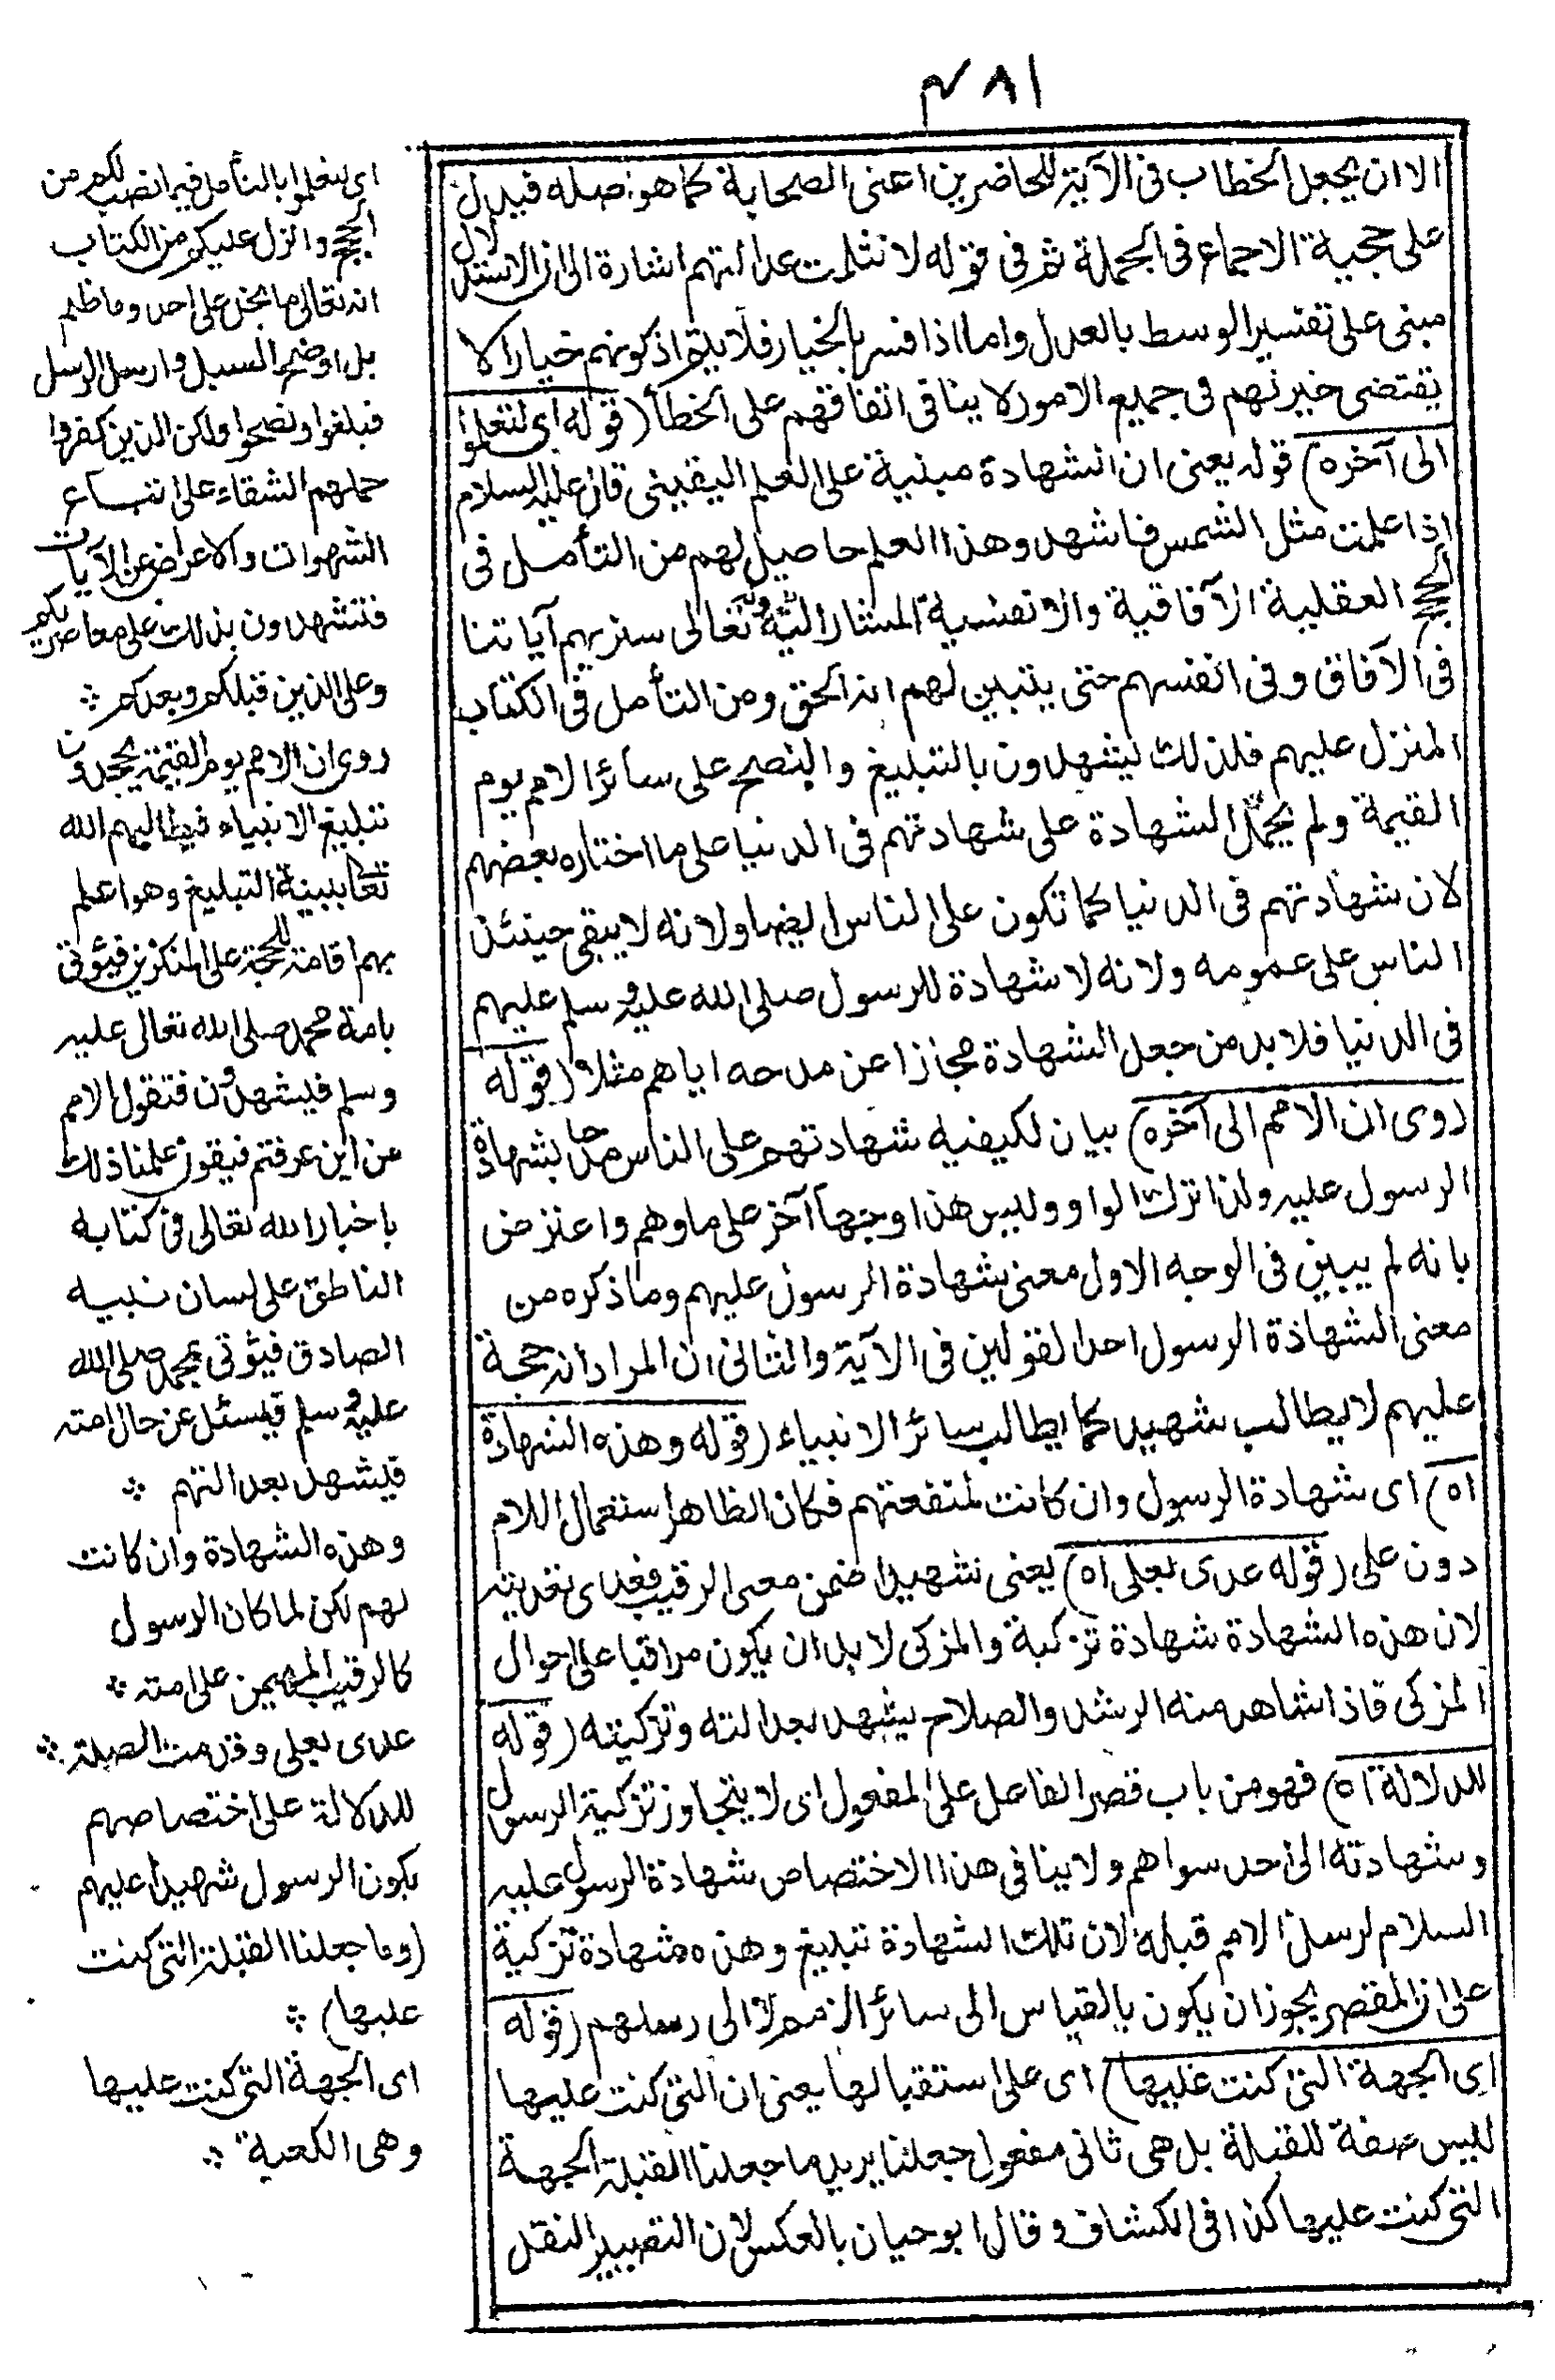 ٤٨١
الا ان يجعل الخطاب فى الآية للحاضرين اعنى الصحابة كما هو اصله فيدل
على حجية الاجماع فى الجملة ثم فى قوله لانثلمت عدالتهم اشارة الى ان الاستدلال
مبنى على تفسير الوسط بالعدل واما اذا فسر بالخيار فلا يتم اذ كونهم خيارا لا
يقتضى خيرتهم فى جميع الامور لا ينافى اتفاقهم على الخطأ (قوله اى لتعلموا
الى آخره) قوله يعنى ان الشهادة مبنية على العلم اليقينى قال عليه السلام
اذا علمت مثل الشمس فاشهد وهذا العلم حاصيل لهم من التأمل فى
الحجج العقلية الآفاقية والانفسية المشار اليه بقوله تعالى سنريهم آياتنا
فى الآفاق وفى انفسهم حتى يتبين لهم انه الحق ومن التأمل فى الكتاب
المنزل عليهم فلذلك ليشهدون بالتبليغ والنصح على سائر الامم يوم
القيمة ولم يحمل الشهادة على شهادتهم فى الدنيا على ما اختاره بعضهم
لان شهادتهم فى الدنيا كما تكون على الناس ايضا ولانه لا يبقى حينئذ
الناس على عمومه ولانه لا شهادة للرسول صلى الله عليه وسلم عليهم
فى الدنيا فلا بد من جعل الشهادة مجازا عن مدحه اياهم مثلا (قوله
روى ان الامم الى آخره) بيان لكيفيه شهادتهم على الناس بشهادة
الرسول عليه ولذا ترك الواو وليس هذا وجها آخر على ما وهم واعترض
بانه لم يبين فى الوجه الاول معنى شهادة الرسول عليهم وما ذكره من
معنى الشهادة الرسول احد القولين فى الآية والثانى ان المراد انه حجة
عليهم لا يطالب شهيد كما يطالب سائر الانبياء (قوله وهذه الشهادة
اه) اى شهادة الرسول وان كانت لمنفعتهم فكان الظاهر استعمال اللام
دون على (قوله عدى بعلى اه) يعنى شهيدا ضمن معنى الرقيب فعدى تعديته
لان هذه الشهادة شهادة تزكية والمزكى لا بد ان يكون مراقبا على احوال
المزكى فاذا شاهد منه الرشد والصلاح يشهد بعدالته وتزكيته (قوله
للدلالة اه) فهو من باب قصر الفاعل على المفعول اى لا يتجاوز تزكية الرسول
وشهادته الى احد سواهم ولا ينافى هذا الاختصاص شهادة الرسول عليه
السلام لرسل الامم قبله لان تلك الشهادة تبليغ وهذه شهادة تزكية
على ان المقصر يجوز ان يكون بالقياس الى سائر الامم لا الى رسلهم (قوله
اى الجهة التى كنت عليها) اى على استقبالها يعنى ان التى كنت عليها
ليس صفة للقبلة بل هى ثانى مفعول جعلنا يريد ما جعلنا القبلة الجهة
التى كنت عليها كذا فى الكشاف وقال ابو حيان بالعكس لان التصيير النقل
اى لتعلموا بالتأمل فيما نصب لكم من
الحجج وانزل عليكم من الكتاب
انه تعالى ما بخل على احد وما ظلم
بل اوضح السبيل وارسل الرسل
فبلغوا ونصحوا ولكن الذين كفروا
حملهم الشقاء على اتباع
الشهوات والاعراض عن الآيات
فتشهدون بذلك على معاصريكم
وعلى الذين قبلكم وبعدكم
روى ان الامم يوم القيمة يجحدون
تبليغ الانبياء فيطالبهم الله
تعالى ببينة التبليغ وهو اعلم
بهم اقامة للحجة على المنكرين فيؤتى
بامة محمد صلى الله تعالى عليه
وسلم فيشهدون فتقول الامم
من اين عرفتم فيقول علمنا ذلك
باخبار الله تعالى فى كتابه
الناطق على لسان نبيه
الصادق فيؤتى بمحمد صلى الله
عليه وسلم فيسئل عن حال امته
فيشهد بعدالتهم
وهذه الشهادة وان كانت
لهم لكن لما كان الرسول
كالرقيب المهيمن على امته
عدى بعلى وقدمت الصلة
للدلالة على اختصاصهم
بكون الرسول شهيدا عليهم
(وما جعلنا القبلة التى كنت
عليها)
اى الجهة التى كنت عليها
وهى الكعبة